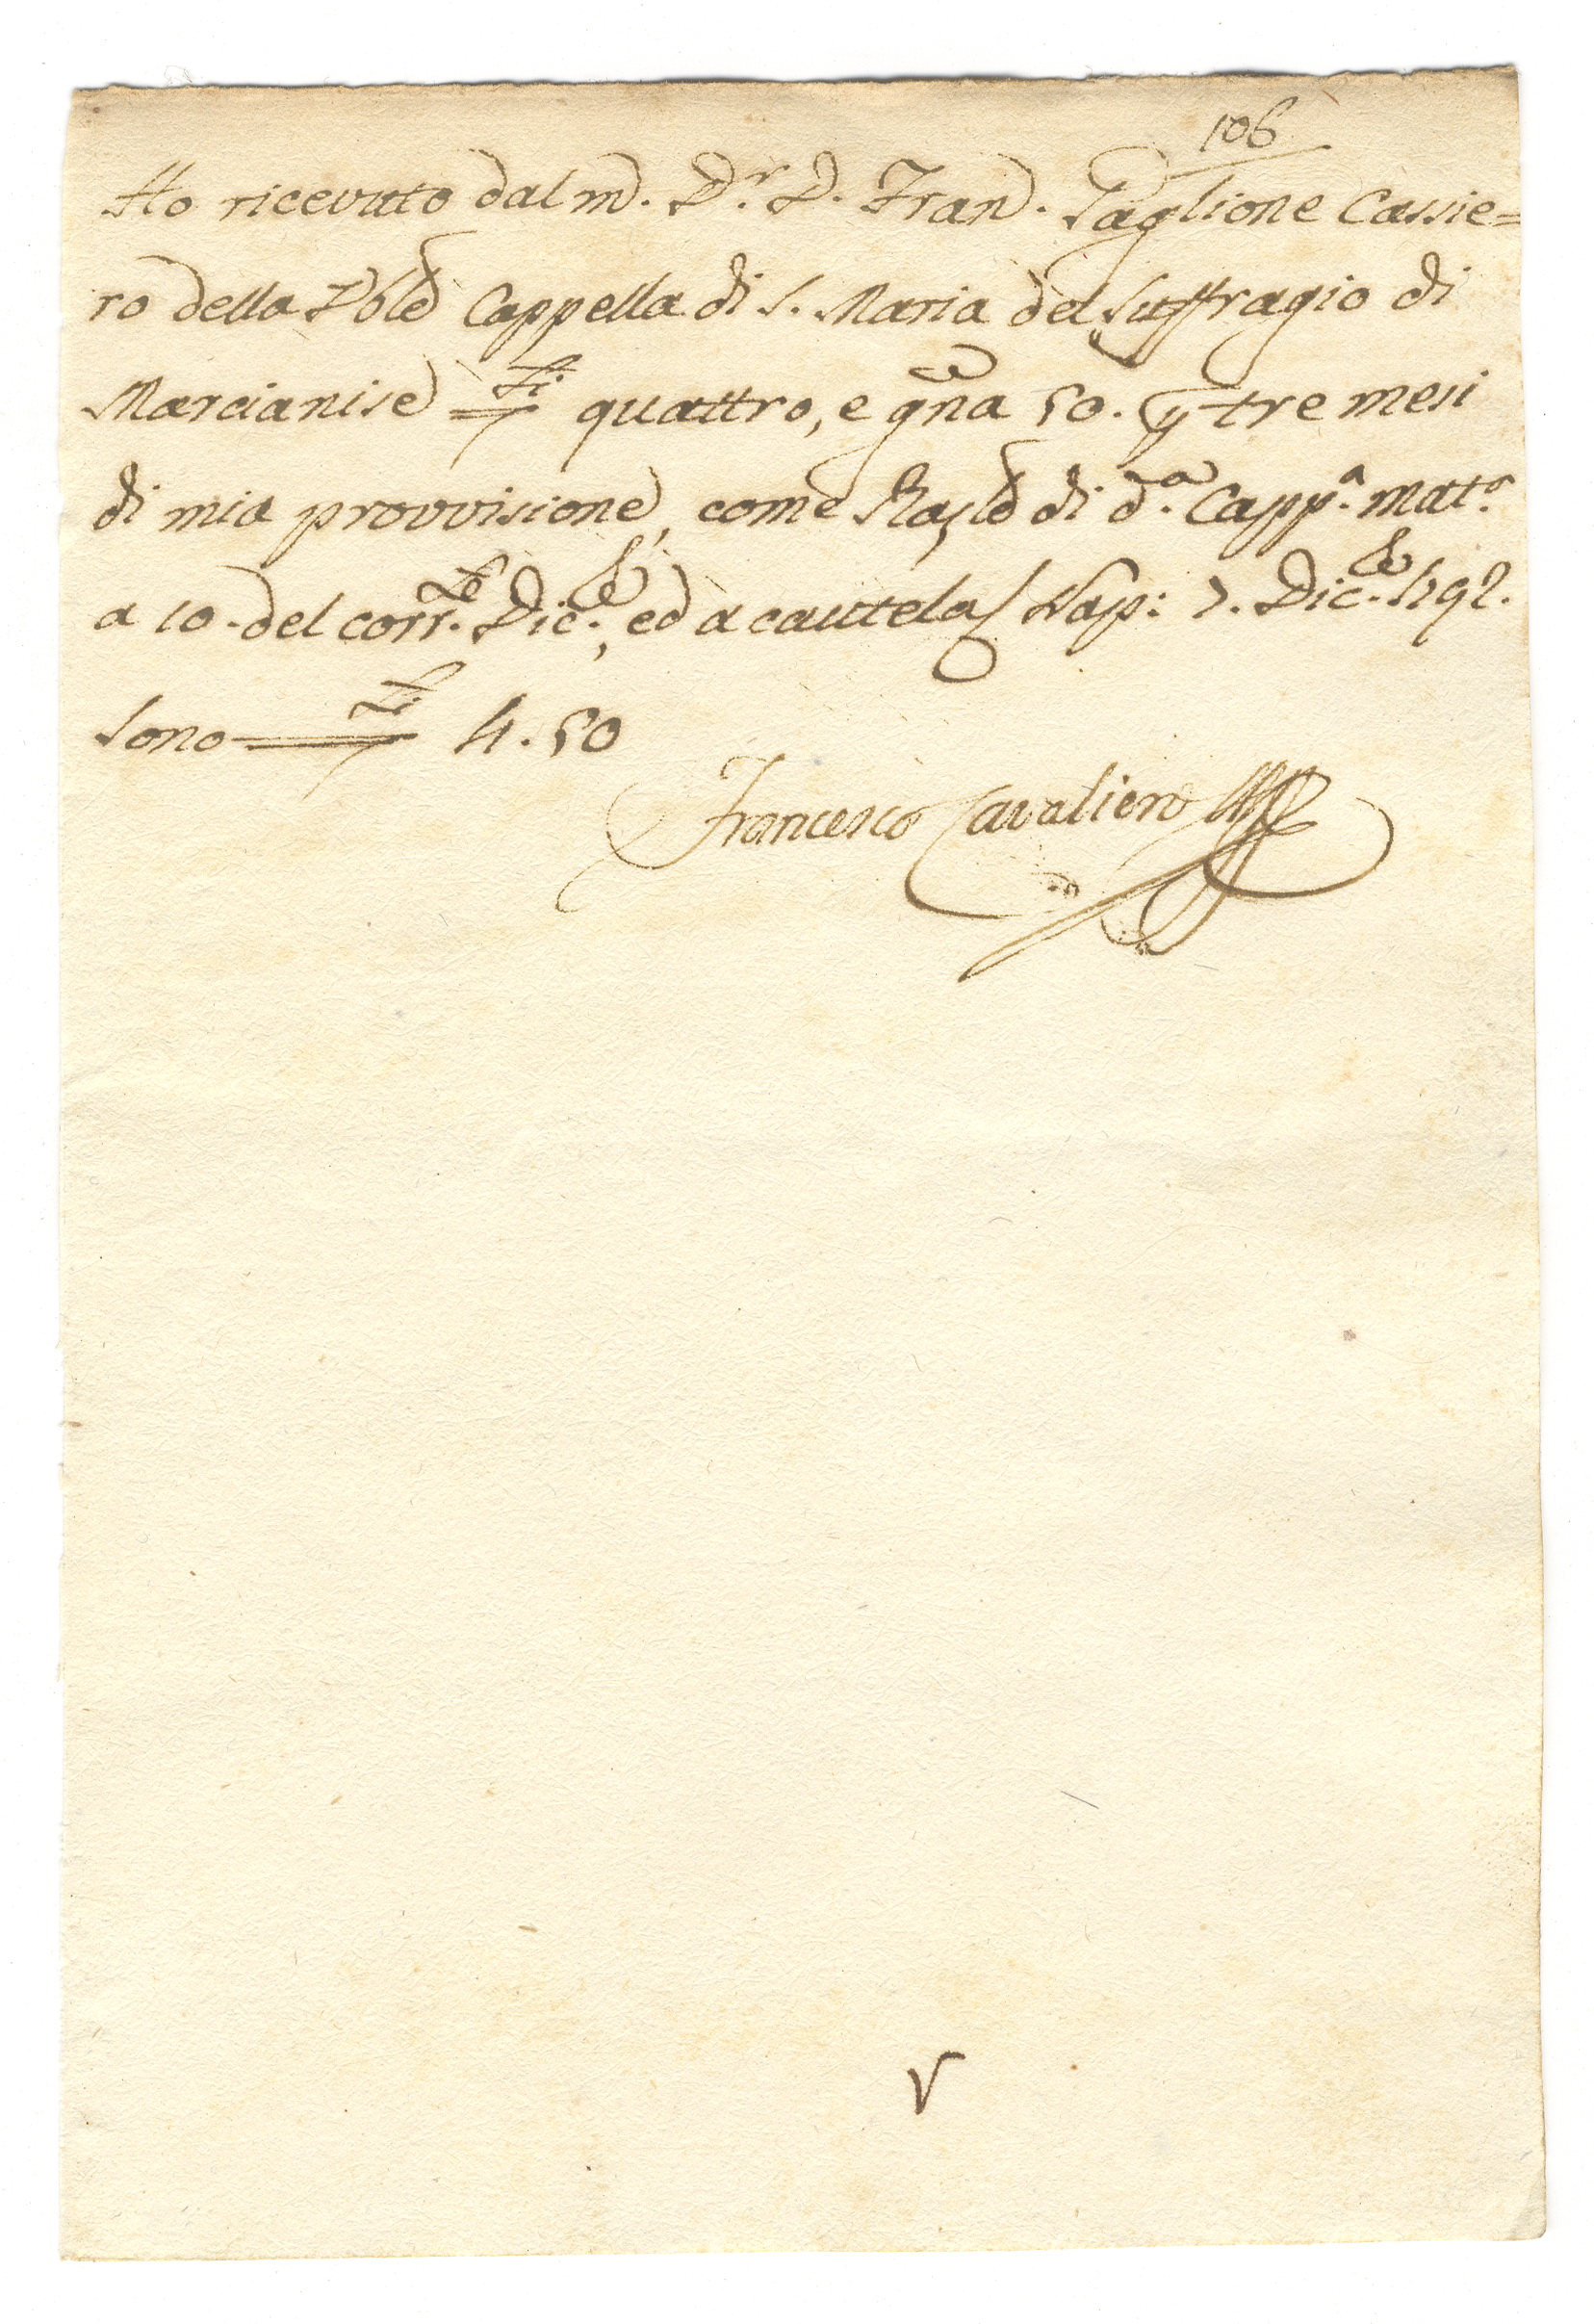 106
Ho ricevuto dal m. D.r D. Fran. Paglione Cassie=
ro della Ven.le Cappella di S. Maria del Suffragio di
Marcianise D.ti quattro, e g.na 50. p tre mesi
di mia provvisione, come di d.a Capp.a mat.a
a 10. del corr.te Dic.e, ed a cautela Nap: 7. Dic.e 1792.
Sono D.ti 4.50
Francesco Cavaliero